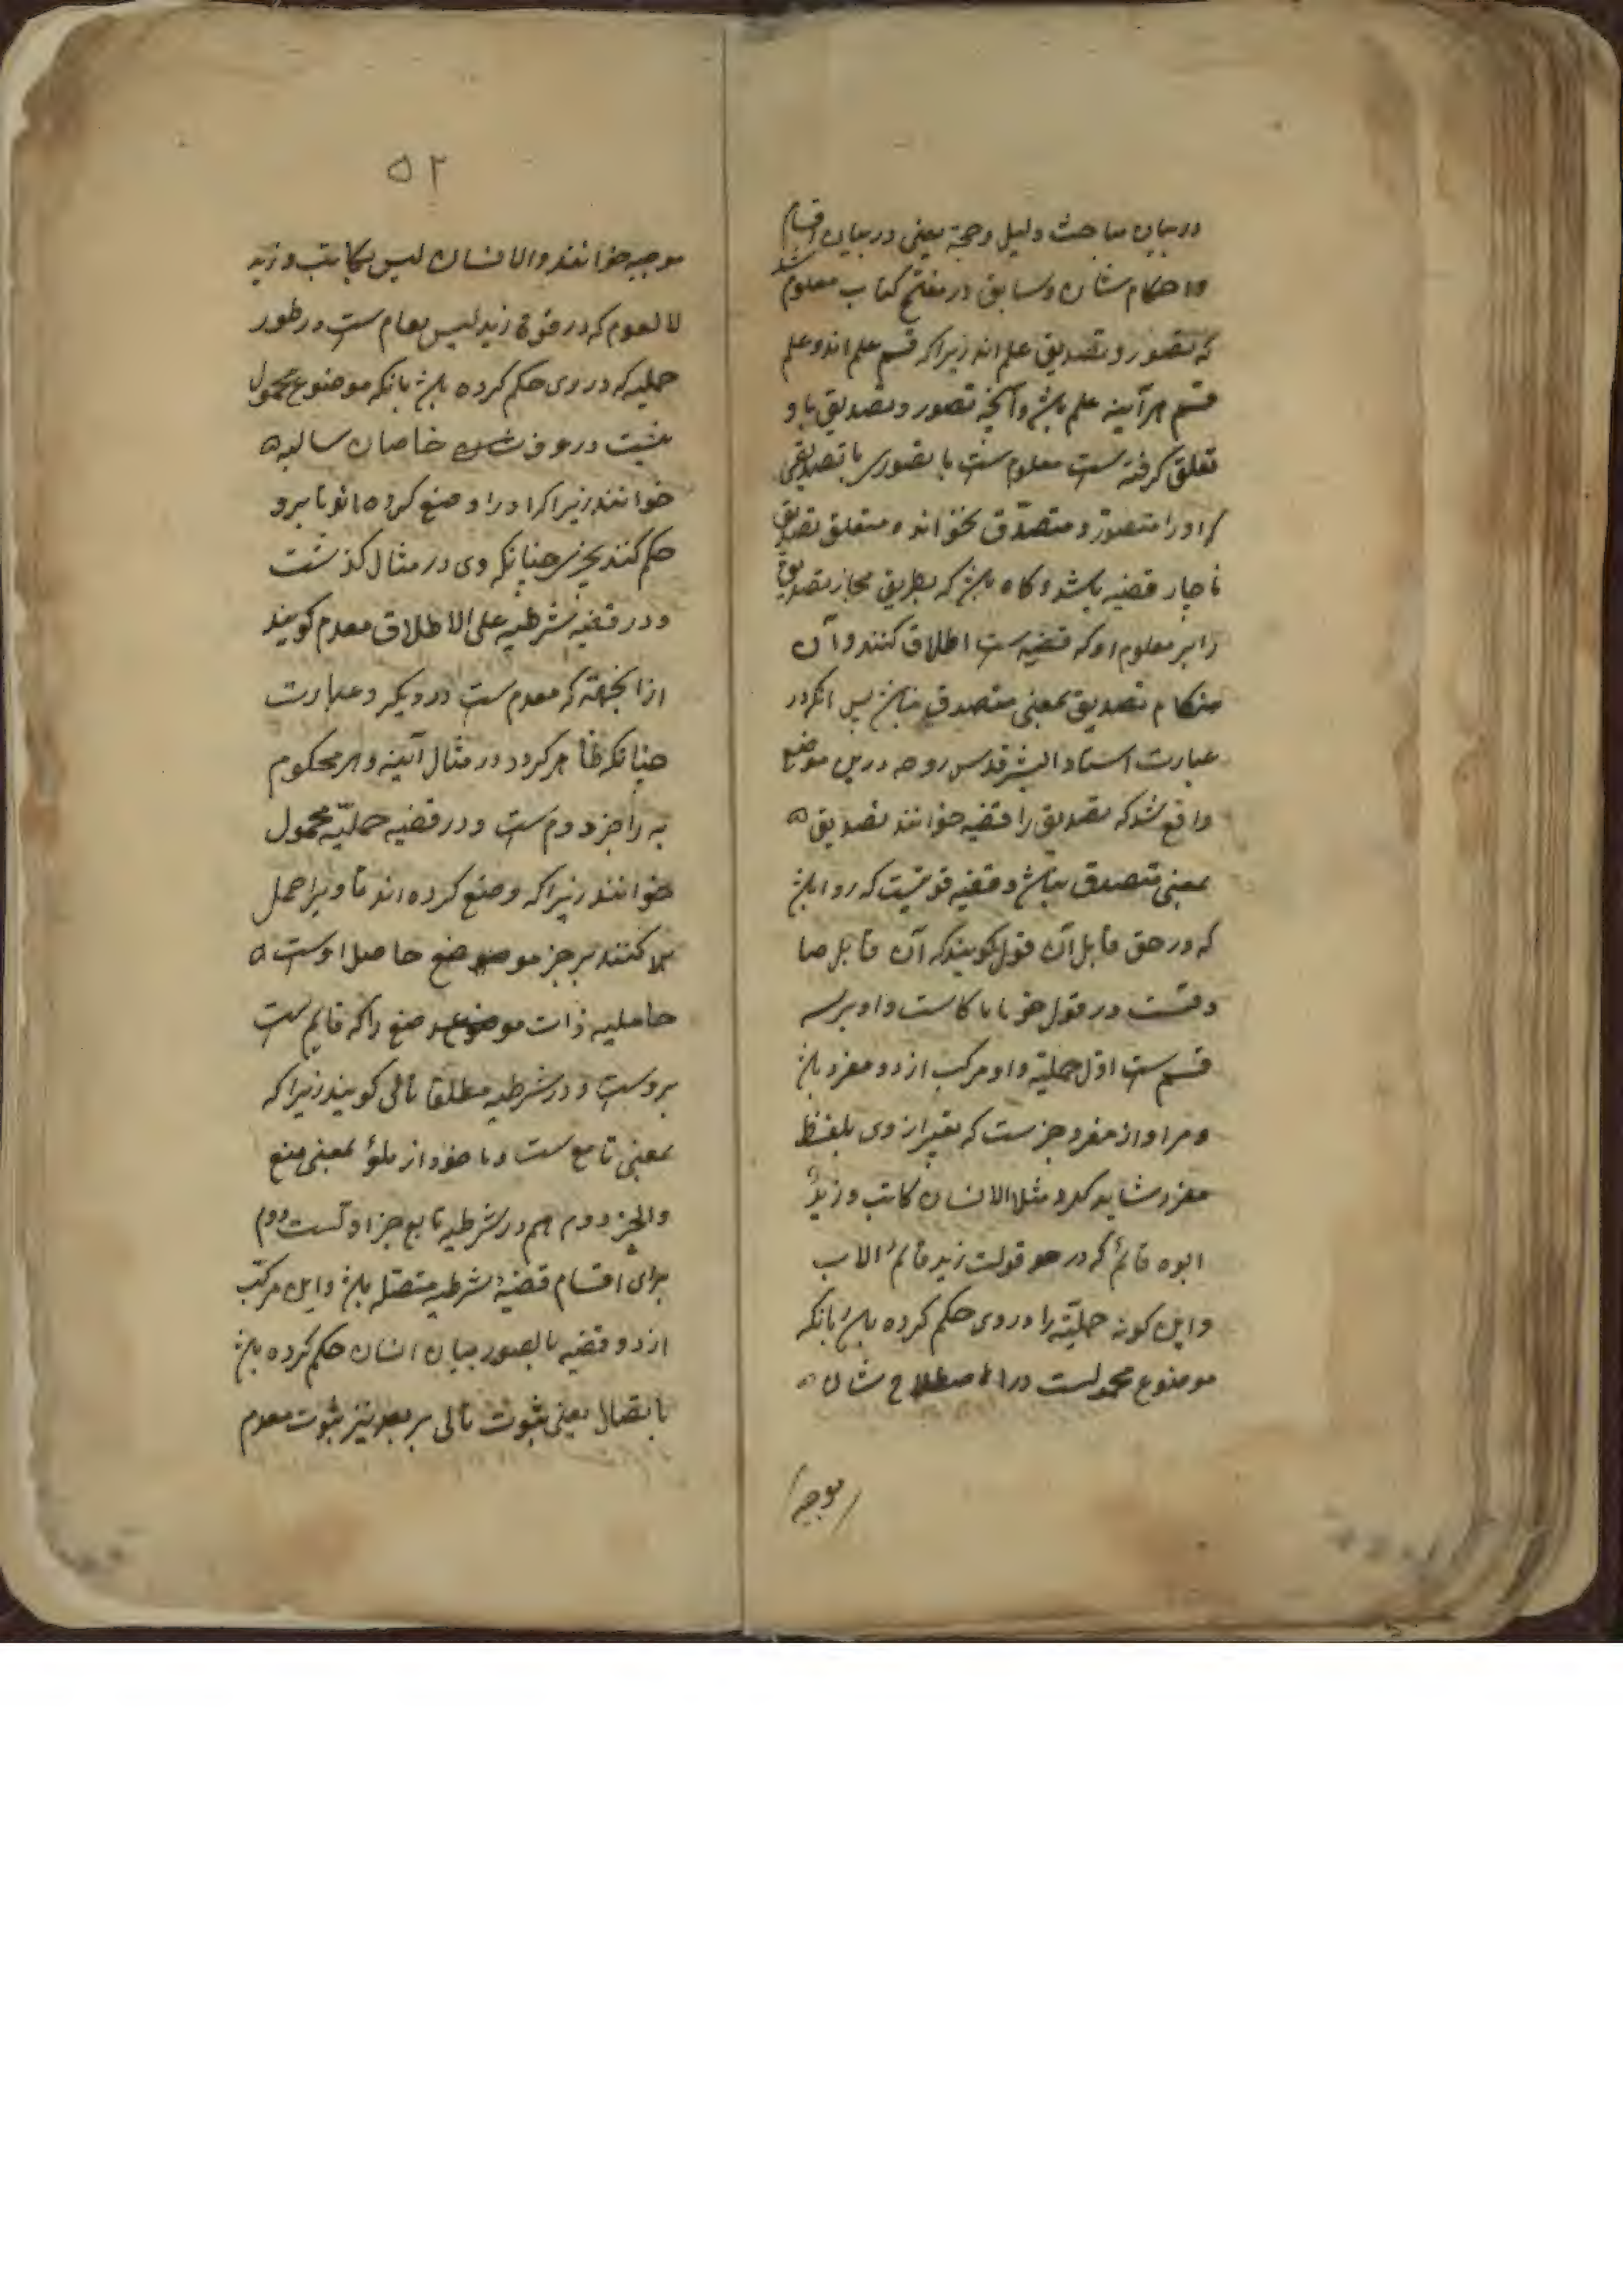 در بیان مباحث دلیل و حجة یعنی در بیان اقسام
و احکام شان و سابق در مفتح کتاب معلوم شد
که تصور و تصدیق علم اند زیرا که قسم علم اند و علم
قسم هر آینه علم باشد و آنچه تصور و تصدیق باو
تعلق گرفته ست معلوم ست یا تصوری یا تصدیقی
او را متصوّر و متصدّق بخوانده متعلق تصدیق
ناچار قضیه باشد و کاه باشد که بطریق مجاز تصدیق
را بر معلوم او که قضیه ست اطلاق کنند و آن
هنکام تصدیق بمعنی متصدق باشد پس انکه در
عبارت استاد البشر قدس روحه درین موضع
واقع شد که تصدیق را قضیه خوانند تصدیق
بمعنی متصدق باشد و قضیه قولیست که روا باشد
که در حق قابل آن قول کویند که آن قابل صا
دقست در قول خود یا کاست و او بر سه
قسم ست اوّل حملیّة و او مرکب از دو مفرد باشد
و مراد از مفرد جزست که تعبیر از وی بلفظ
مفرد شاید کرد مثلا الانسان کاتب و زیدٌ
ابوه قائمٌ که در قولت زید قائم الاب
و این کونه حملیّة را در وی حکم کرده باشد بانکه
موضوع محمولست در اصطلاح شان
موجبه
۵۲
موجبه خوانند و الانسان لیس بکاتب و زید
لا که در قوة زید لیس ست در طور
حملیه که در وی حکم کرده باشد بانکه موضوع محمول
نیست در عرف خاصان سالبه
خوانند زیرا که او را وضع کرده اند تا برو
حکم کنند بچیزی چنانکه وی در مثال کذشت
و در قضیه شرطیه علی الاطلاق مقدم کویند
از انجهة که مقدم ست در دیکر و عبارت
چنانکه ظاهر کردد در مثال آینه و هر محکوم
به را جزو دوم ست و در قضیه حملیّه محمول
خوانند زیرا که وضع کرده اند تا ویرا حمل
کنند بر جز موضوع حاصل اوست
حاملیه ذات موضوع را که قایم ست
بروست و در شرطیه مطلقا تالی کویند زیرا که
بمعنی تابع ست و ماخوذ از تلوٌ بمعنی
و الجزء دوم هم در شرطیه تابع جز اولست دوم
برای اقسام قضیهٔ شرطیه متصله باشد و این مرکب
از دو قضیه میان انسان حکم کرده باشد
باتصال یعنی بثبوت تالی بر تقدیر ثبوت مقدم